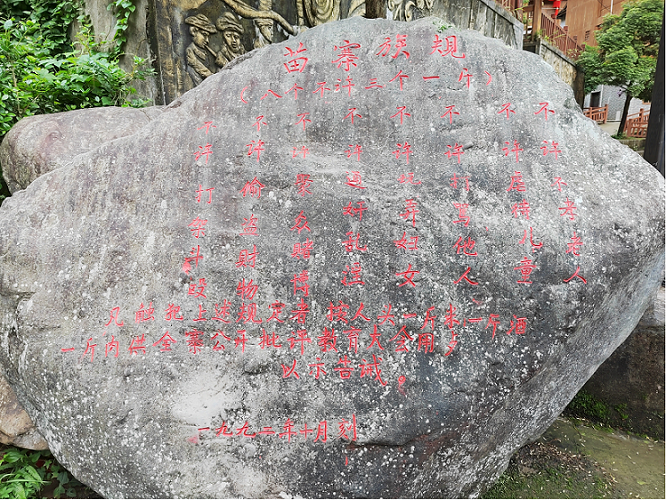 苗寨族规
(八个不许三个一斤)
不许不孝老人
不许虐待儿童
不许打骂他人
不许玩弄妇女
不许通奸乱注
不许聚众赌博
不许偷盗财物
不许打架斗殴
凡触犯上述规定者按人头一斤米一斤酒
一斤肉供全寨公开批评教育大会用
以示告诫。
一九九二年十月刻